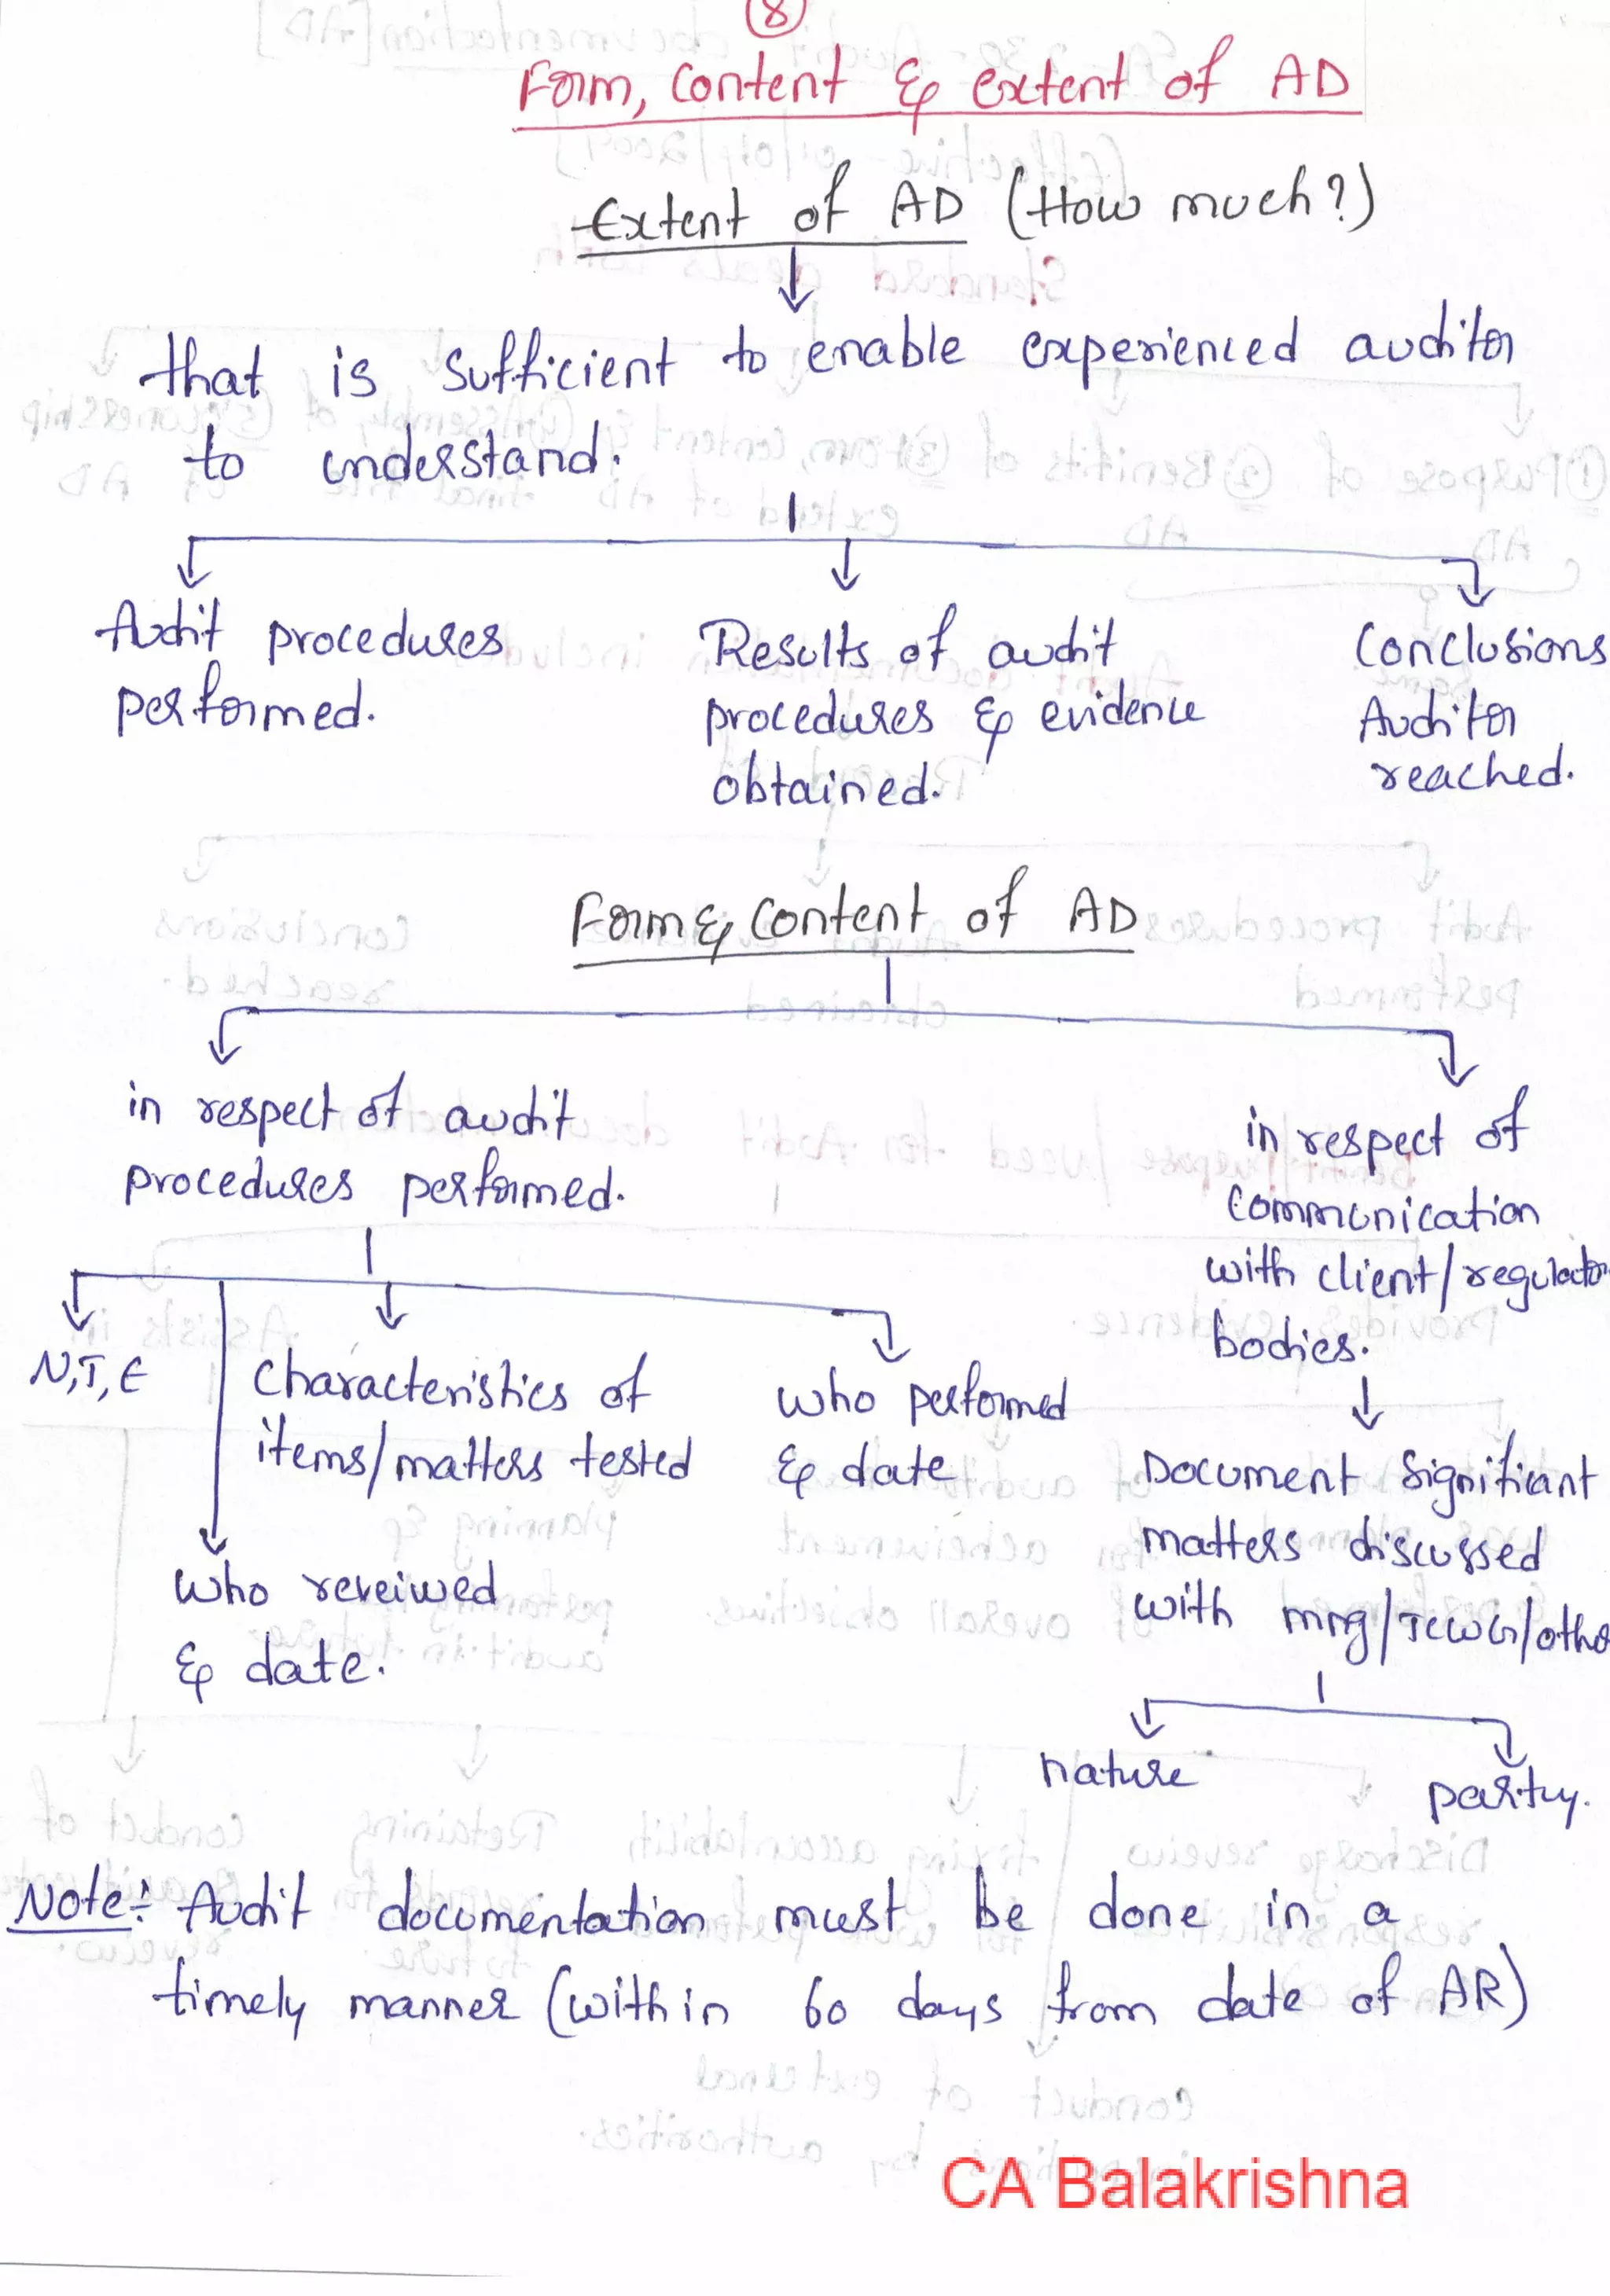 8
Form, Content & extent of AD
Extent of AD (How much?)
that is sufficient to enable experienced auditor
to understand.
Audit procedures
performed.
Results of audit
procedures & evidence
obtained.
Conclusions
Auditor
reached.
Form & Content of AD
in respect of audit
procedures performed.
in respect of
communication
with client/regulator
bodies.
N,T,E
Characteristics of
items/matters tested
who performed
& date
who reveiwed
& date.
Document Significant
matters discussed
with mng/TCWG/othe
nature
party.
Note:- Audit documentation must be done in a
timely manner (within 60 days from date of AR)
CA Balakrishna